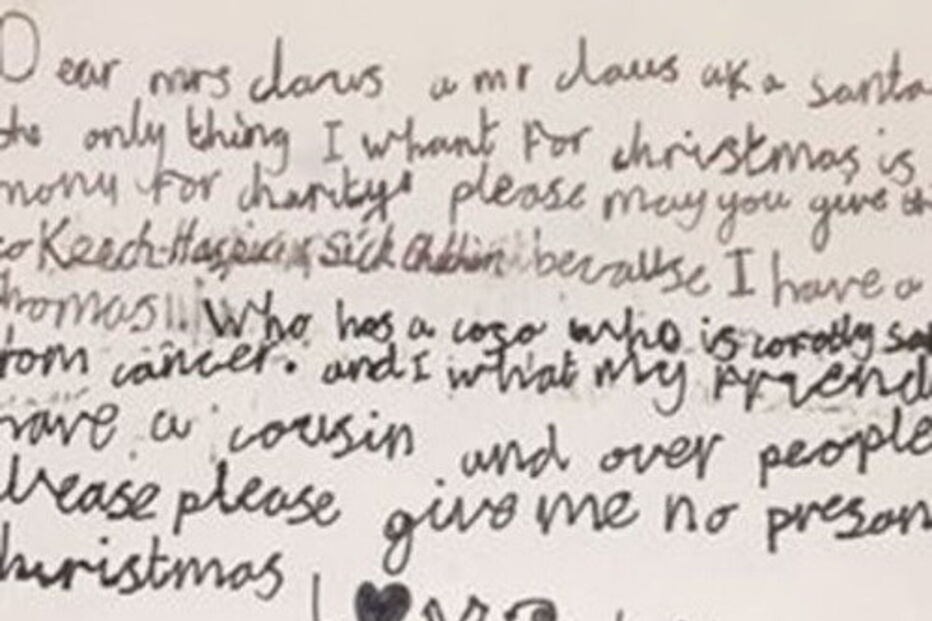 Dear mrs claus a mr claus aka santa
the only thing I whant For christmas is
mony For charity please may you give
to Keech Hospice Sick Children because I have a
homas!! Who has a who is
rom cancer. and I what My Friend
have a cousin and over people
Please please give me no presan
hristmas I ♥